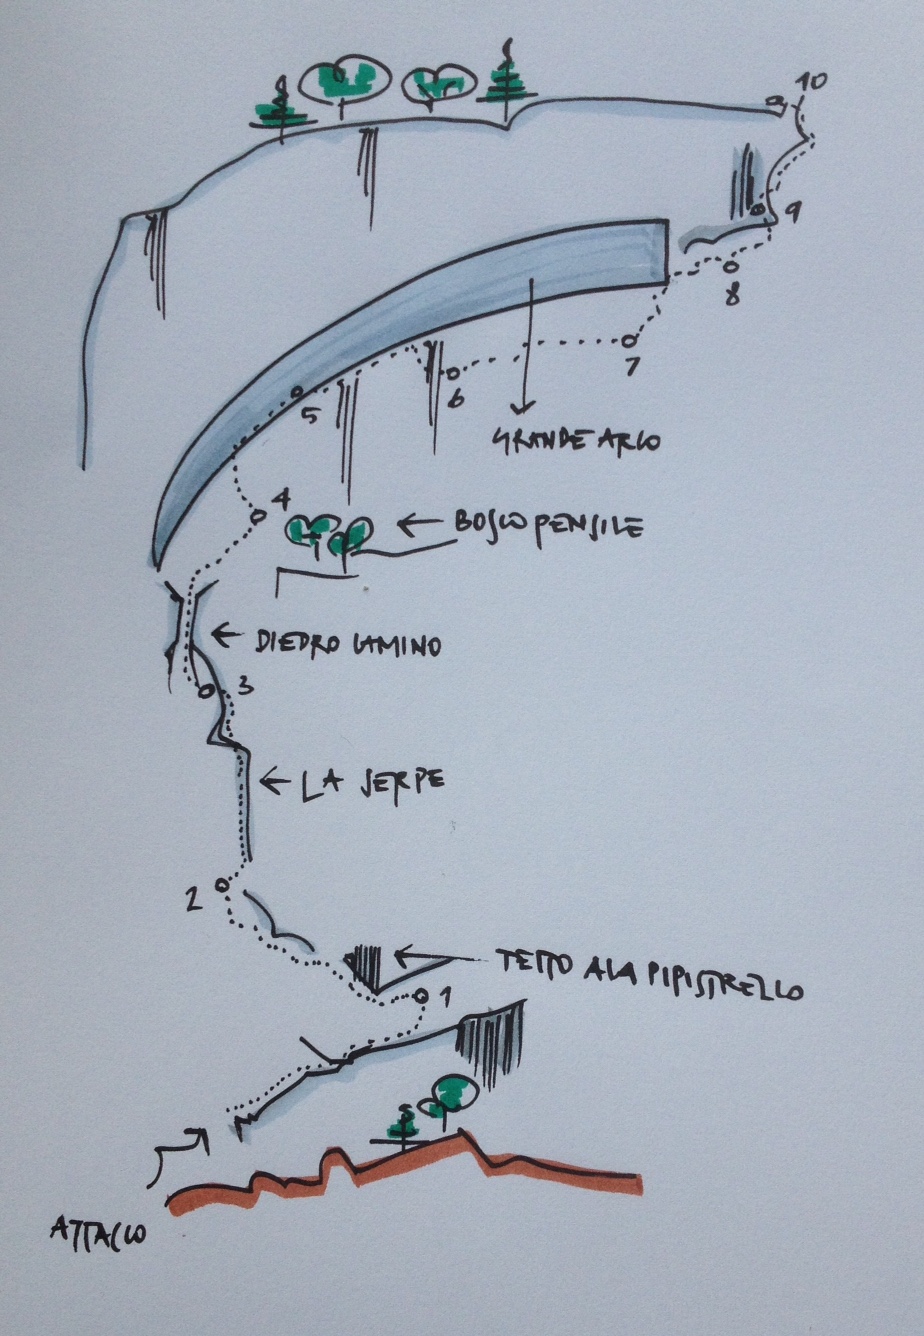 10
9
8
7
6
5
GRANDE ARCO
4
BOSCO PENSILE
DIEDRO CAMINO
3
LA SERPE
2
TETTO ALA PIPISTRELLO
1
ATTACCO